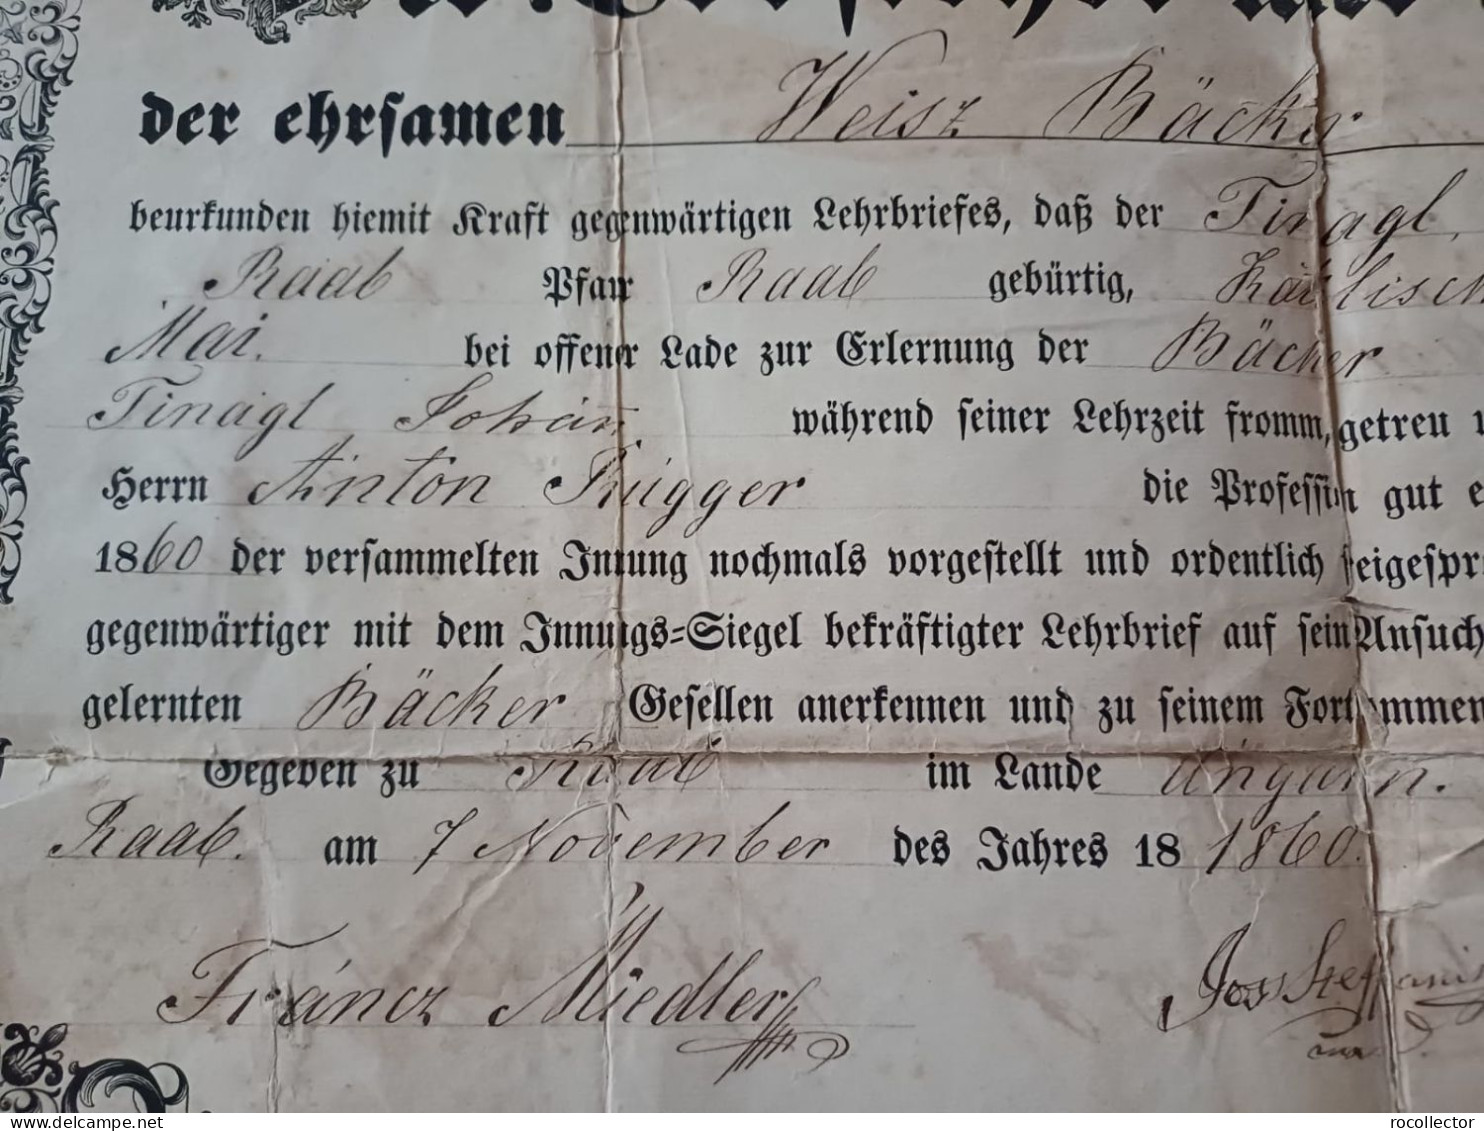 der ehrsamen Weisz Bäcker
beurkunden hiemit Kraft gegenwärtigen Lehrbriefes, daß der Tinagl,
Raab Pfarr Raab gebürtig,
Mai. bei offener Lade zur Erlernung der Bäcker
Tinagl Johan̅ während seiner Lehrzeit fromm, getreu
Herrn Anton die Profession gut
1860 der versammelten Innung nochmals vorgestellt und ordentlich freigespr
gegenwärtiger mit dem Innungs-Siegel bekräftigter Lehrbrief auf sein Ansuch
gelernten Bäcker Gesellen anerkennen und zu seinem Fortkommen
Gegeben zu Raab im Lande Ungarn.
Raab. am 7 November des Jahres 18 1860.
Fráncz Miedler
delcampe.net
rocollector